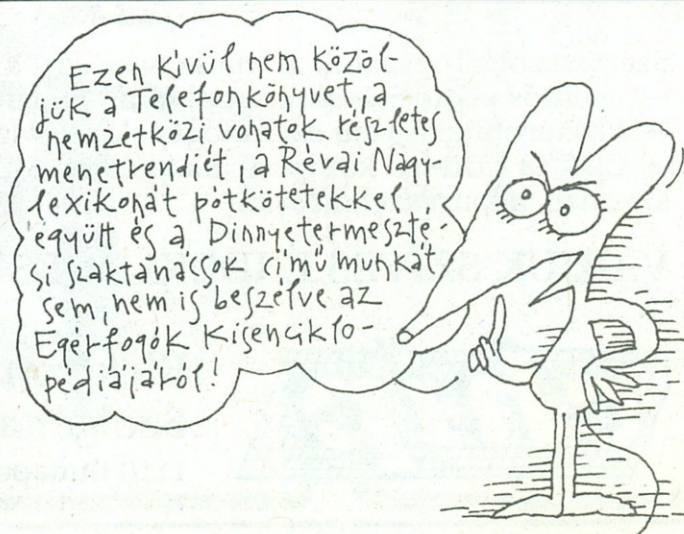 Ezen kívül nem közöl-
jük a Telefonkönyvet, a
nemzetközi vonatok részletes
menetrendjét, a Révai Nagy-
lexikonát pótkötetekkel
együtt és a Dinnyetermeszté-
si szaktanácsok című munkát
sem, nem is beszélve az
Egérfogók Kisenciklo-
pédiájáról!